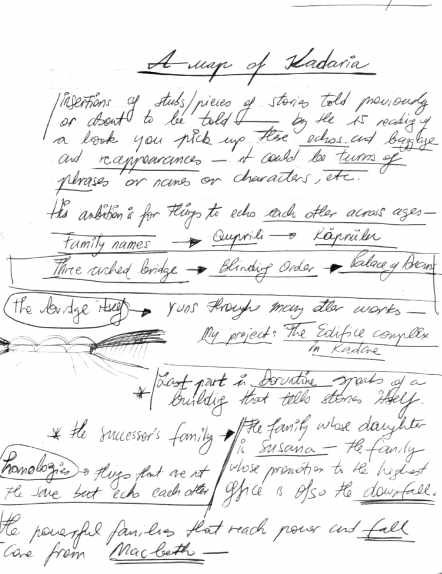 A map of Kadaria
insertions of stubs/pieces of stories told previously
or about to be told — by the 15 reading of
a book you pick up these echos and baggage
and reappearances — it could be turns of
phrases or names or characters, etc.
His ambition is for things to echo each other across ages —
Family names → Quprili → Köprülü
Three arched bridge → Blinding Order → Palace of Dreams
the bridge itself → runs through many other works —
My project: The Edifice complex
in Kadare
* Last part in Doruntine speaks of a
building that tells stories itself.
* the successor's family → The family whose daughter
is Susana — the family
whose promotion to the highest
office is also the downfall.
homologies → things that are not
the same but echo each other
the powerful families that reach power and fall
come from Macbeth —